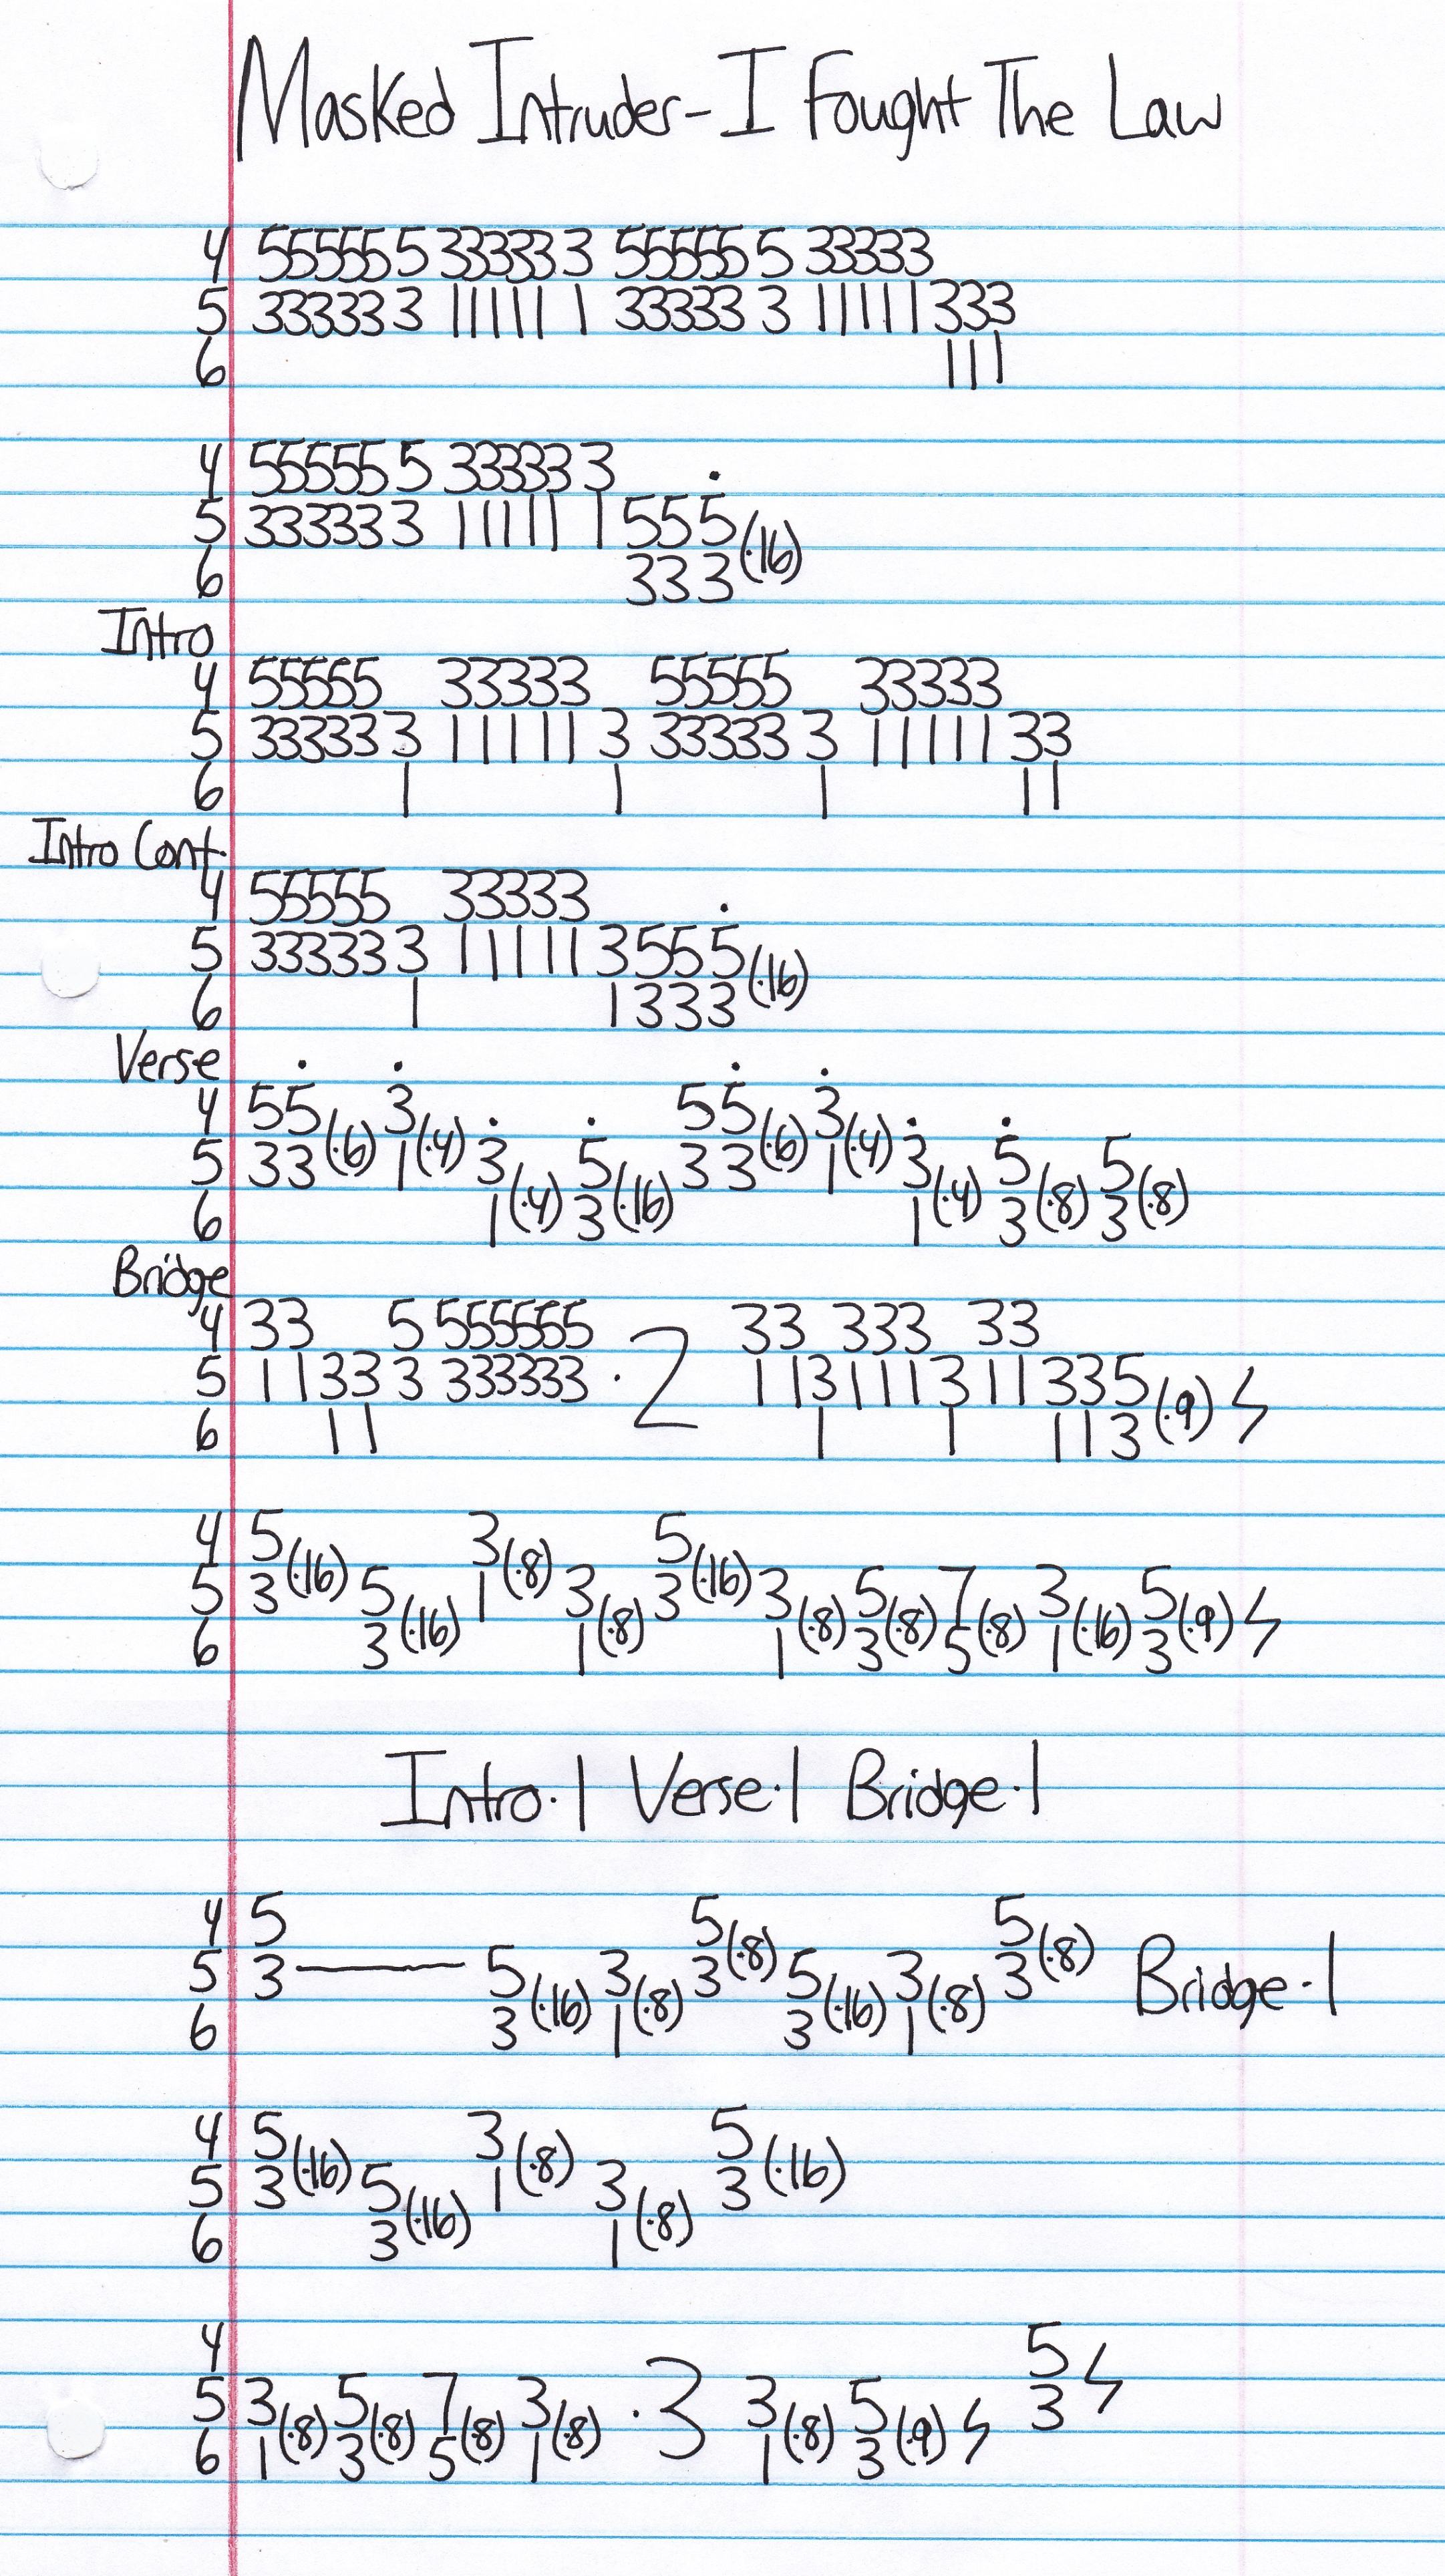 Masked Intruder-I Fought The Law
4 55555 5 33333 3 55555 5 33333
5 33333 3 11111 1 33333 3 11111 333
6 111
4 55555 5 33333 3
5 33333 3 11111 1 555(·16)
6 333
Intro
4 55555 33333 55555 33333
5 33333 3 11111 3 33333 3 11111 33
6 1 1 1 11
Intro Cont.
4 55555 33333
5 33333 3 11111 3555(·16)
6 1 1333
Verse
4 55 3 55 3
5 33(·6) 1(·4) 3 5 33(·6) 1(·4) 3 5 5
6 1(·4) 3(·16) 1(·4) 3(·8) 3(·8)
Bridge
4 33 5 555555 33 333 33
5 1133 3 333333 ·2 113111311335(·9)
6 11 1 1 113
4 5 3 5
5 3(·16) 5 1(·8) 3 3(·16) 3 5 7 3 5
6 3(·16) 1(·8) 1(·8) 3(·8) 5(·8) 1(·16) 3(·9)
Intro·1 Verse·1 Bridge·1
4 5 5 5
5 3 — 5 3 3(·8) 5 3 3(·8) Bridge·1
6 3(·16) 1(·8) 3(·16) 1(·8)
4 5 3 5
5 3(·16) 5 1(·8) 3 3(·16)
6 3(·16) 1(·8)
4 5
5 3 5 7 3 ·3 3 5 3
6 1(·8) 3(·8) 5(·8) 1(·8) 1(·8) 3(·9)